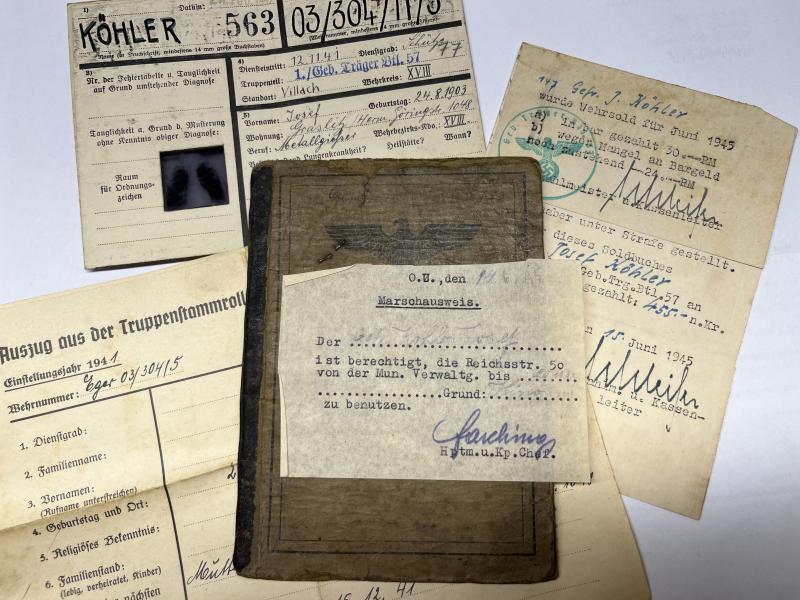 1)
Datum:
KÖHLER
563
03/304/11/5
Name (in Druckschrift, mindestens 14 mm große Buchstaben)
(Wehrnummer, mindestens 14 mm große Ziffern)
3)
Nr. der Fehlertabelle u. Tauglichkeit
auf Grund umstehender Diagnose
Tauglichkeit a. Grund d. Musterung
ohne Kenntnis obiger Diagnose:
Raum
für Ordnungs-
zeichen
4)
Diensteintritt: 12.11.41 Dienstgrad: Schütze
Truppenteil: 1./Geb. Träger Btl. 57
Standort: Villach Wehrkreis: XVIII
5)
Vorname: Josef Geburtstag: 24.8.1903
Wohnung: Graslitz, Herm. Göringstr. 1048
Beruf: Metallgießer Wehrbezirks-Kdo.: XVIII
Lungenkrankheit? Heilstätte? Wann?
147 Gefr. J. Köhler
wurde Wehrsold für Juni 1945
a) in bar gezahlt 30.--RM
b) wegen Mangel an Bargeld
noch zustehend 24.--RM
Zahlmeister u. Kassenleiter
aber unter Strafe gestellt.
dieses Soldbuches
Josef Köhler
Geb.Trg.Btl.57 an
gezahlt: 455.- n.Kr.
15. Juni 1945
u. Kassen-
leiter
O.U., den
Marschausweis.
Der
ist berechtigt, die Reichsstr. 50
von der Mun. Verwaltg. bis
Grund:
zu benutzen.
Hptm.u.Kp.Chef.
Auszug aus der Truppenstammroll
Einstellungsjahr 1941
Wehrnummer: Eger 03/304/5
1. Dienstgrad:
2. Familienname:
3. Vornamen:
(Rufname unterstreichen)
4. Geburtstag und Ort:
5. Religiöses Bekenntnis:
6. Familienstand:
(ledig, verheiratet, Kinder)
nächsten
12. 41